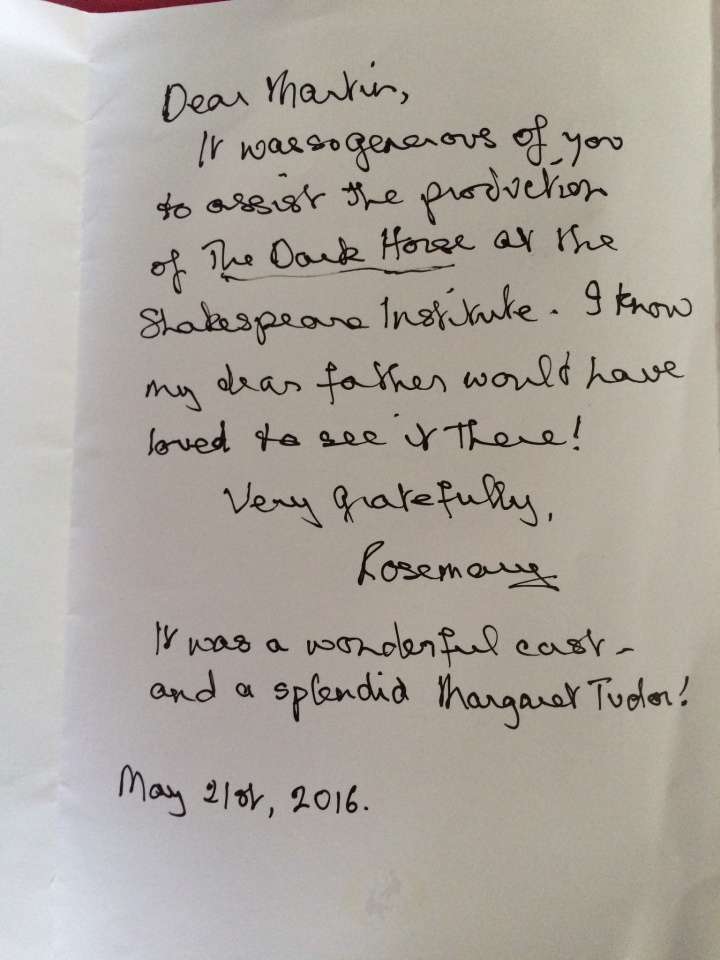 Dear Martin,
It was so generous of you
to assist the production
of The Dark Horse at the
Shakespeare Institute. I know
my dear father would have
loved to see it there!
Very gratefully,
Rosemary
It was a wonderful cast -
and a splendid Margaret Tudor!
May 21st, 2016.